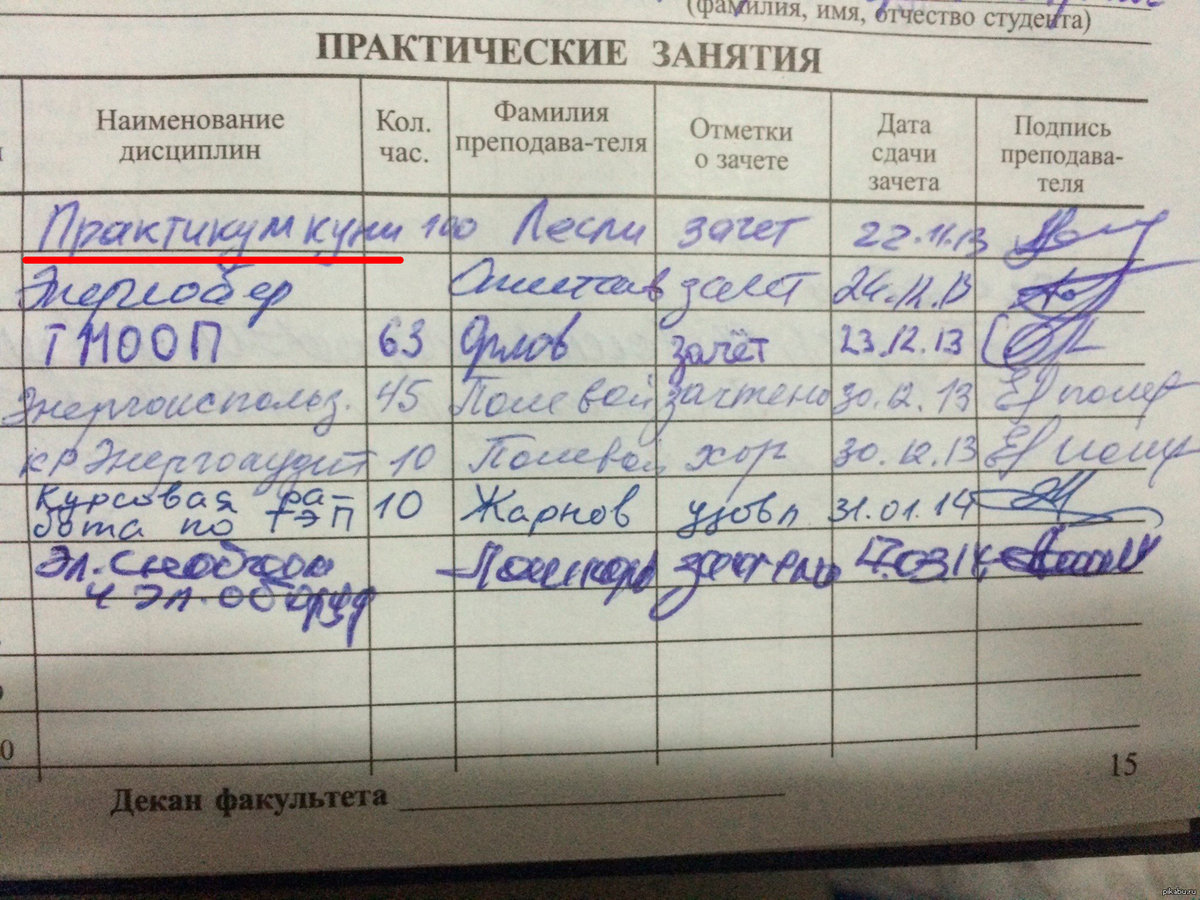 (фамилия, имя, отчество студента)
ПРАКТИЧЕСКИЕ ЗАНЯТИЯ
Наименование дисциплин
Кол. час.
Фамилия преподава-теля
Отметки о зачете
Дата сдачи зачета
Подпись преподава-теля
Практикум куни 100 Песли зачет 22.11.13
Энергосбер зачет 24.12.13
ТМООП 63 Орлов зачёт 23.12.13
Энергоиспольз. 45 Полевой зачтено 30.12.13
КР Энергоаудит 10 Полевой хор 30.12.13
Курсовая ра-
бота по ТЭП 10 Жарнов удовл 31.01.14
Эл. зачтено 17.03.14
и эл. оборуд
0
15
Декан факультета
pikabu.ru